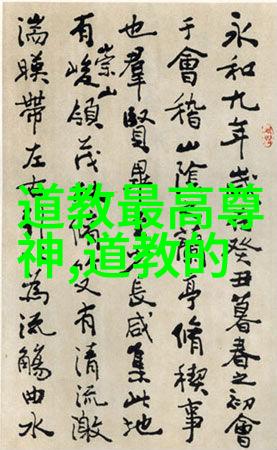 永和九年歲癸丑暮春之初會
于會稽山陰亭脩稧事
也羣賢畢長咸集此地
有崇山峻領茂又有清流激
湍暎帶左右為流觴曲水
道教最高尊
神,道教的